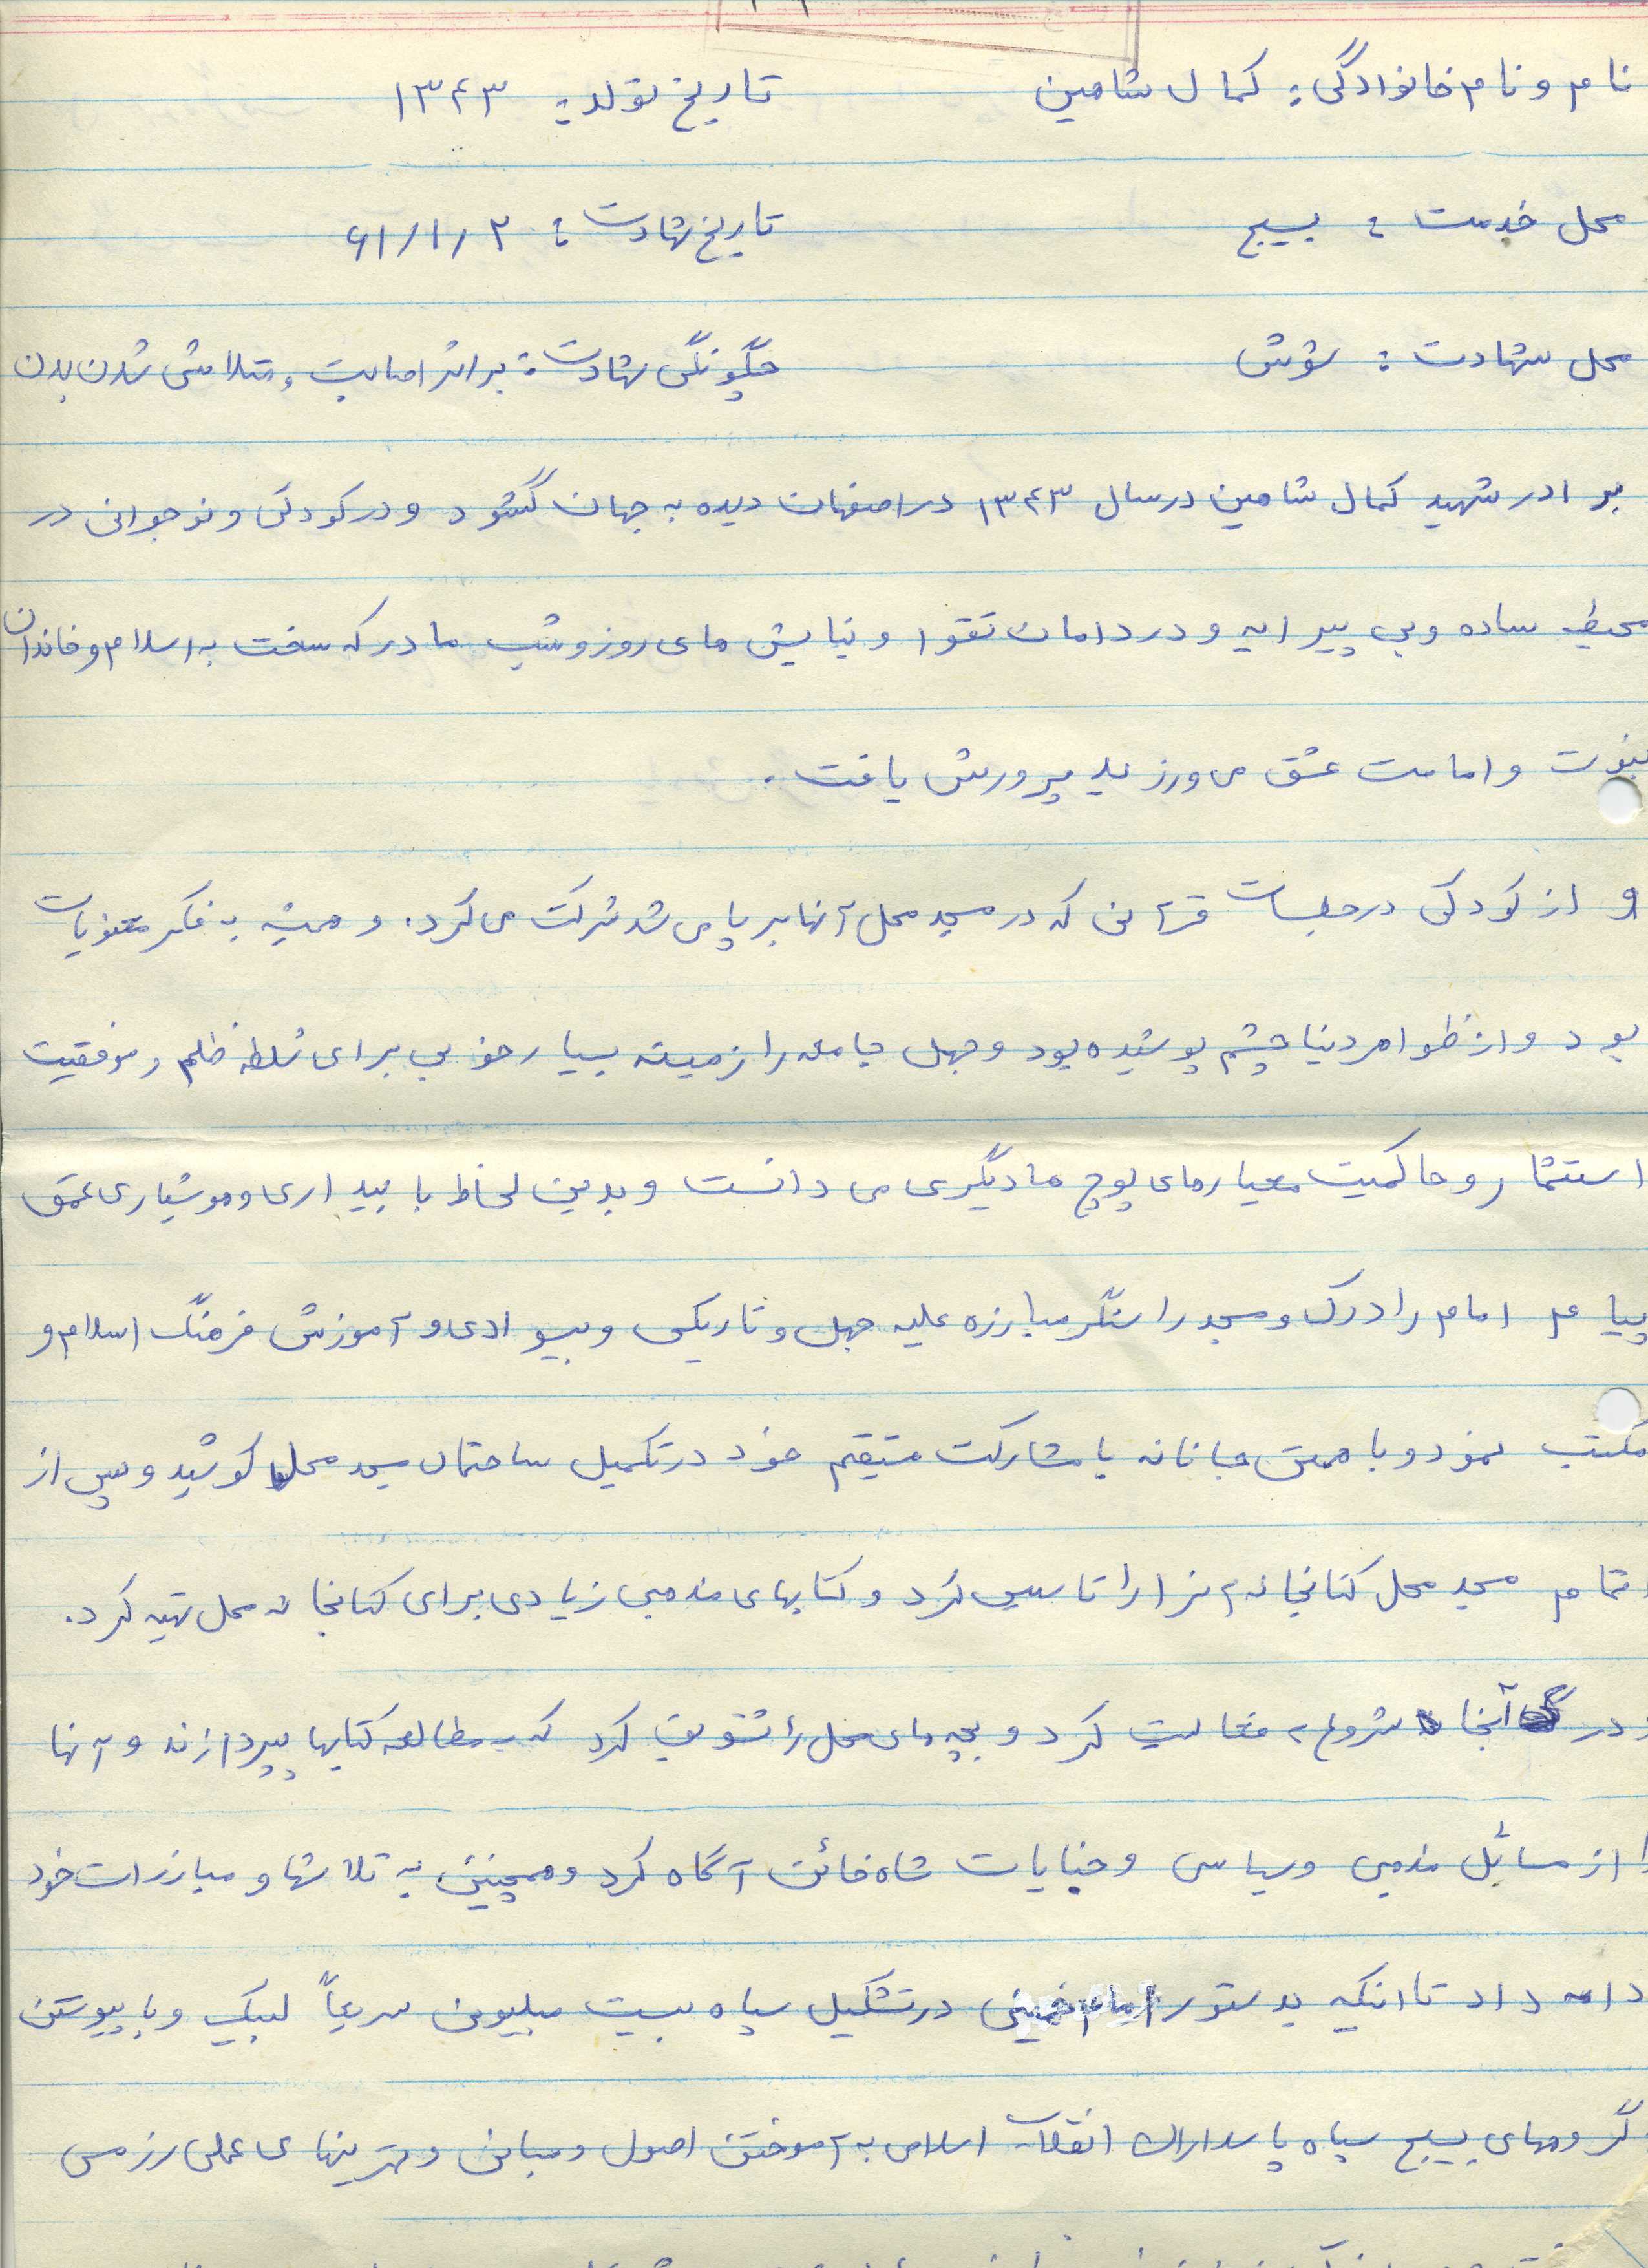 نام و نام خانوادگی: کمال شامین تاریخ تولد: ۱۳۴۳
محل خدمت: بسیج تاریخ شهادت: ۶۱/۱/۲
محل شهادت: شوش چگونگی شهادت: بر اثر اصابت و متلاشی شدن بدن
برادر شهید کمال شامین در سال ۱۳۴۳ در اصفهان دیده به جهان گشود و در کودکی و نوجوانی در
محیط ساده و بی پیرایه و در دامان تقوا و نیایش های روز و شب مادر که سخت به اسلام و خاندان
نبوت و امامت عشق می ورزید پرورش یافت.
و از کودکی در جلسات قرآنی که در مسجد محل آنها بر پا می شد شرکت می کرد. و همیشه به فکر معنویات
بود و از ظواهر دنیا چشم پوشیده بود و جهل جامعه را زمینه بسیار خوبی برای تسلط ظلم و موفقیت
استثمار و حاکمیت معیارهای پوچ مادیگری می دانست و بدین لحاظ با بیداری و هوشیاری عمق
پیام امام را درک و مسجد را سنگر مبارزه علیه جهل و تاریکی و بیسوادی و آموزش فرهنگ اسلام و
مکتب نمود و با همتی جانانه با مشارکت مستقیم خود در تکمیل ساختمان مسجد محل کوشید و پس از
اتمام مسجد محل کتابخانه آنرا را تاسیس کرد و کتابهای مذهبی زیادی برای کتابخانه محل تهیه کرد.
و در آنجا شروع به فعالیت کرد و بچه های محل را تشویق کرد که به مطالعه کتابها بپردازند و آنها
را از مسائل مذهبی و سیاسی و جنایات شاه خائن آگاه کرد و همچنین به تلاشها و مبارزات خود
ادامه داد تا اینکه بدستور امام خمینی در تشکیل سپاه بیست میلیونی سریعاً لبیک و با پیوستن
گروههای بسیج سپاه پاسداران انقلاب اسلامی به آموختن اصول و مبانی و تمرینهای عملی رزمی